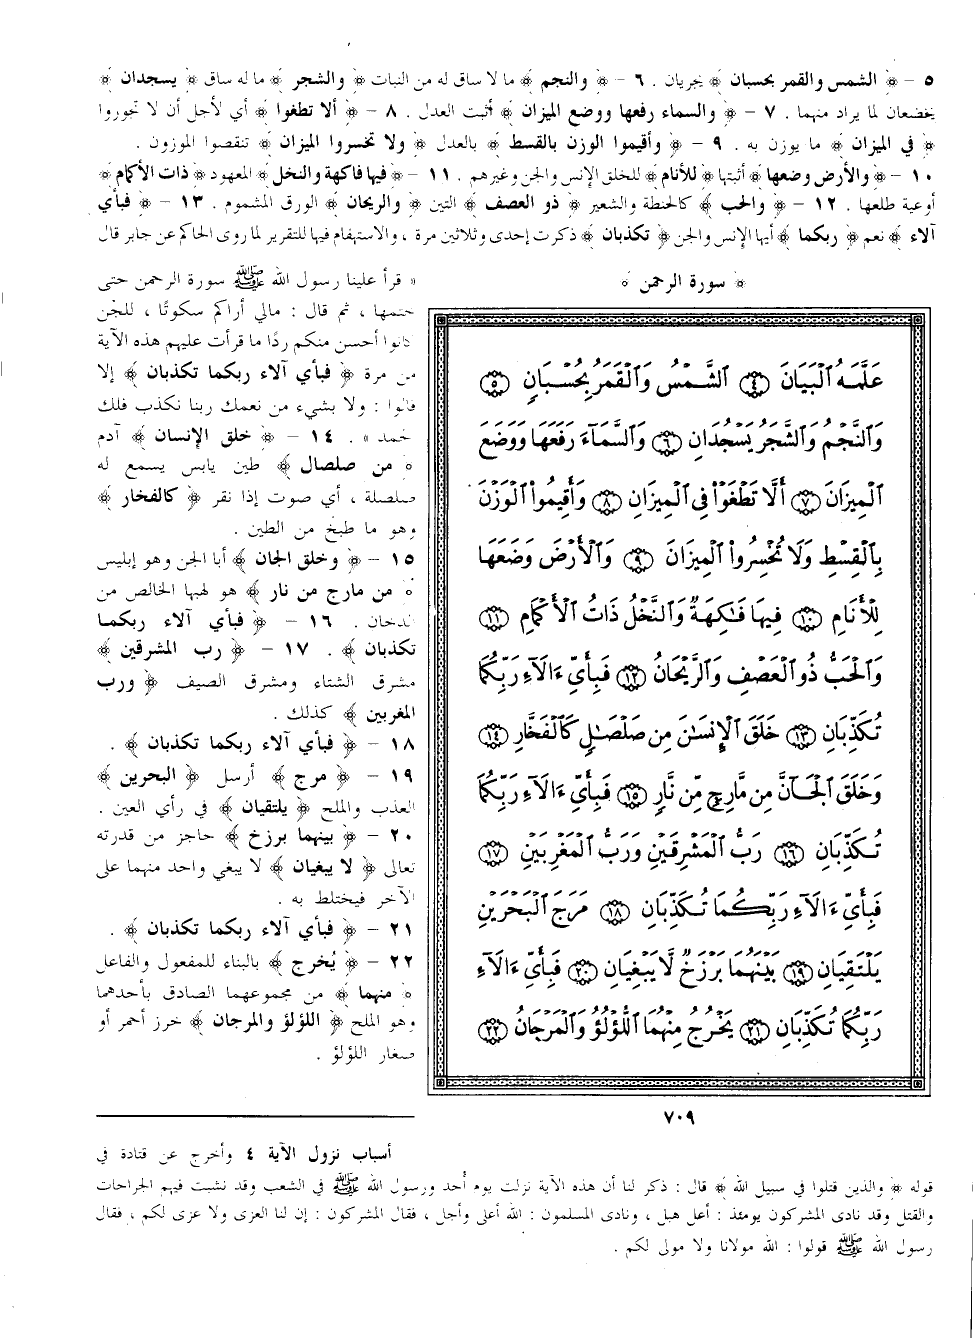 ٥ - ﴿ الشمس والقمر بحسبان ﴾ يجريان . ٦ - ﴿ والنجم ﴾ ما لا ساق له من النبات ﴿ والشجر ﴾ ما له ساق ﴿ يسجدان ﴾
يخضعان لما يراد منهما . ٧ - ﴿ والسماء رفعها ووضع الميزان ﴾ أثبت العدل . ٨ - ﴿ ألا تطغوا ﴾ أي لأجل أن لا تجوروا
﴿ في الميزان ﴾ ما يوزن به . ٩ - ﴿ وأقيموا الوزن بالقسط ﴾ بالعدل ﴿ ولا تخسروا الميزان ﴾ تنقصوا الموزون .
١٠ - ﴿ والأرض وضعها ﴾ أثبتها ﴿ للأنام ﴾ للخلق الإنس والجن وغيرهم . ١١ - ﴿ فيها فاكهة والنخل ﴾ المعهود ﴿ ذات الأكمام ﴾
أوعية طلعها . ١٢ - ﴿ والحب ﴾ كالحنطة والشعير ﴿ ذو العصف ﴾ التبن ﴿ والريحان ﴾ الورق المشموم . ١٣ - ﴿ فبأي
آلاء ﴾ نعم ﴿ ربكما ﴾ أيها الإنس والجن ﴿ تكذبان ﴾ ذكرت إحدى وثلاثين مرة ، والاستفهام فيها للتقرير لما روى الحاكم عن جابر قال
﴿ سورة الرحمن ﴾
عَلَّمَهُ الْبَيَانَ ٤ الشَّمْسُ وَالْقَمَرُ بِحُسْبَانٍ ٥
وَالنَّجْمُ وَالشَّجَرُ يَسْجُدَانِ ٦ وَالسَّمَآءَ رَفَعَهَا وَوَضَعَ
الْمِيزَانَ ٧ أَلَّا تَطْغَوْا فِي الْمِيزَانِ ٨ وَأَقِيمُوا الْوَزْنَ
بِالْقِسْطِ وَلَا تُخْسِرُوا الْمِيزَانَ ٩ وَالْأَرْضَ وَضَعَهَا
لِلْأَنَامِ ١٠ فِيهَا فَٰكِهَةٌ وَالنَّخْلُ ذَاتُ الْأَكْمَامِ ١١
وَالْحَبُّ ذُو الْعَصْفِ وَالرَّيْحَانُ ١٢ فَبِأَيِّ ءَالَآءِ رَبِّكُمَا
تُكَذِّبَانِ ١٣ خَلَقَ الْإِنسَٰنَ مِن صَلْصَٰلٍ كَالْفَخَّارِ ١٤
وَخَلَقَ الْجَآنَّ مِن مَّارِجٍ مِّن نَّارٍ ١٥ فَبِأَيِّ ءَالَآءِ رَبِّكُمَا
تُكَذِّبَانِ ١٦ رَبُّ الْمَشْرِقَيْنِ وَرَبُّ الْمَغْرِبَيْنِ ١٧
فَبِأَيِّ ءَالَآءِ رَبِّكُمَا تُكَذِّبَانِ ١٨ مَرَجَ الْبَحْرَيْنِ
يَلْتَقِيَانِ ١٩ بَيْنَهُمَا بَرْزَخٌ لَّا يَبْغِيَانِ ٢٠ فَبِأَيِّ ءَالَآءِ
رَبِّكُمَا تُكَذِّبَانِ ٢١ يَخْرُجُ مِنْهُمَا اللُّؤْلُؤُ وَالْمَرْجَانُ ٢٢
« قرأ علينا رسول الله ﷺ سورة الرحمن حتى
ختمها ، ثم قال : مالي أراكم سكوتًا ، للجن
كانوا أحسن منكم ردًا ما قرأت عليهم هذه الآية
من مرة ﴿ فبأي آلاء ربكما تكذبان ﴾ إلا
قالوا : ولا بشيء من نعمك ربنا نكذب فلك
الحمد » . ١٤ - ﴿ خلق الإنسان ﴾ آدم
﴿ من صلصال ﴾ طين يابس يسمع له
صلصلة ، أي صوت إذا نقر ﴿ كالفخار ﴾
وهو ما طبخ من الطين .
١٥ - ﴿ وخلق الجان ﴾ أبا الجن وهو إبليس
﴿ من مارج من نار ﴾ هو لهبها الخالص من
الدخان . ١٦ - ﴿ فبأي آلاء ربكما
تكذبان ﴾ . ١٧ - ﴿ رب المشرقين ﴾
مشرق الشتاء ومشرق الصيف ﴿ ورب
المغربين ﴾ كذلك .
١٨ - ﴿ فبأي آلاء ربكما تكذبان ﴾ .
١٩ - ﴿ مرج ﴾ أرسل ﴿ البحرين ﴾
العذب والملح ﴿ يلتقيان ﴾ في رأي العين .
٢٠ - ﴿ بينهما برزخ ﴾ حاجز من قدرته
تعالى ﴿ لا يبغيان ﴾ لا يبغي واحد منهما على
الآخر فيختلط به .
٢١ - ﴿ فبأي آلاء ربكما تكذبان ﴾ .
٢٢ - ﴿ يُخرج ﴾ بالبناء للمفعول والفاعل
﴿ منهما ﴾ من مجموعهما الصادق بأحدهما
وهو الملح ﴿ اللؤلؤ والمرجان ﴾ خرز أحمر أو
صغار اللؤلؤ .
٧٠٩
أسباب نزول الآية ٤ وأخرج عن قتادة في
قوله ﴿ والذين قتلوا في سبيل الله ﴾ قال : ذكر لنا أن هذه الآية نزلت يوم أُحد ورسول الله ﷺ في الشعب وقد نشبت فيهم الجراحات
والقتل وقد نادى المشركون يومئذ : أعل هبل ، ونادى المسلمون : الله أعلى وأجل ، فقال المشركون : إن لنا العزى ولا عزى لكم ، فقال
رسول الله ﷺ قولوا : الله مولانا ولا مولى لكم .